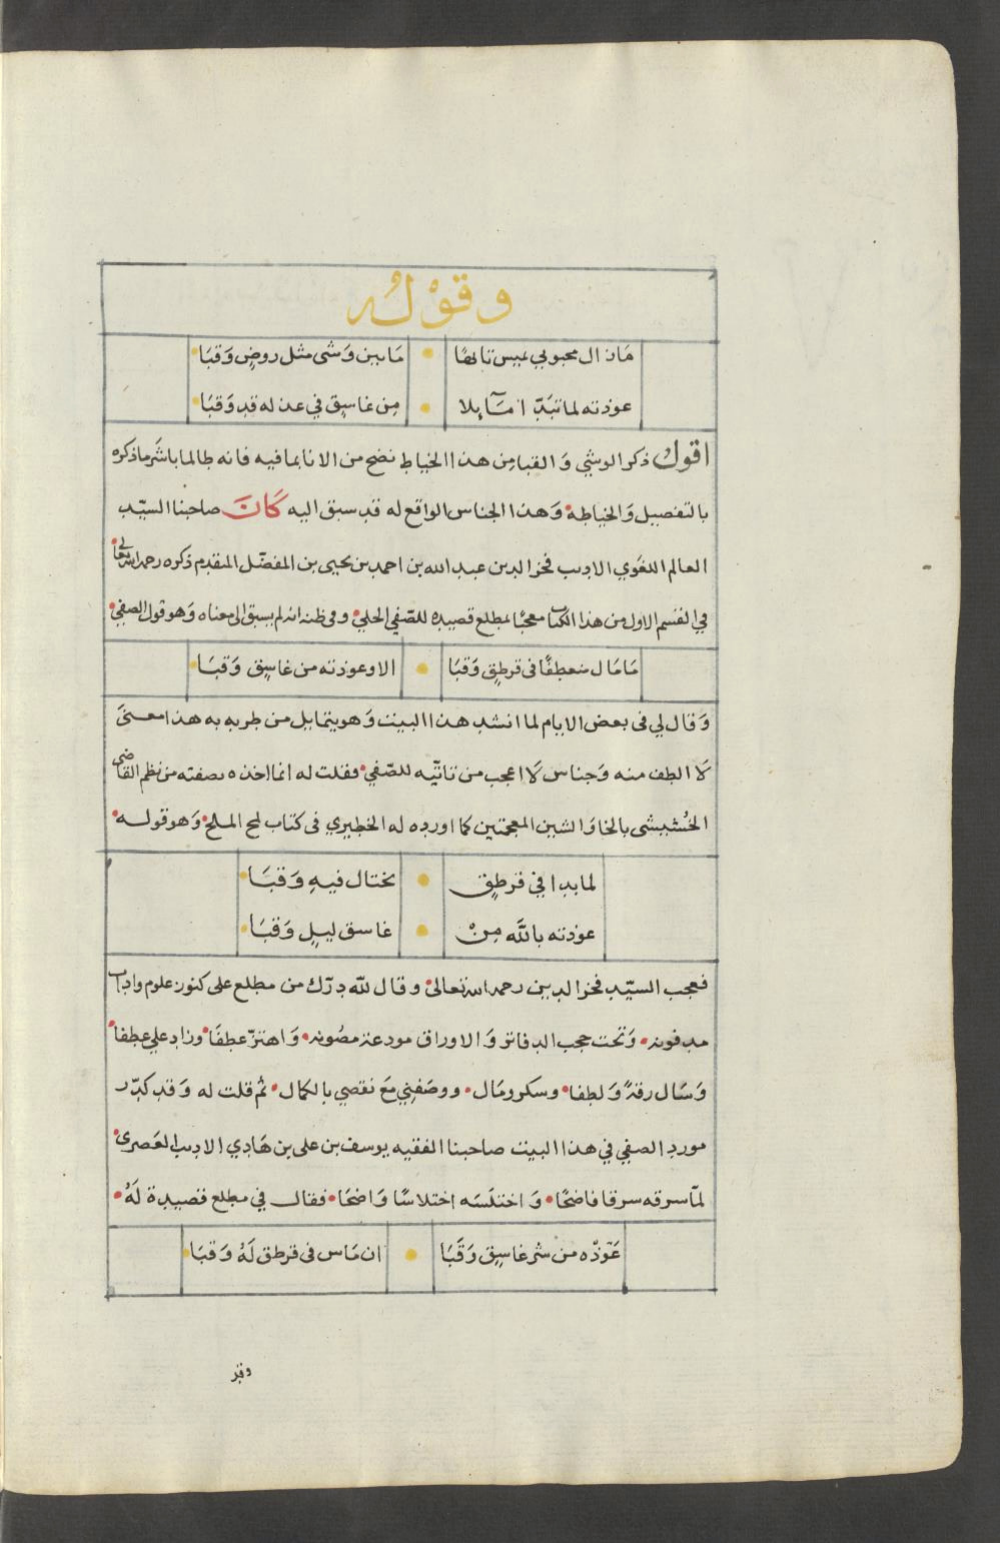 وقوله
مَا زال محبوبي يميس تايهًا • مَا بين وَشى مثل روضٍ وَقبَا
عوذته لما تبَدّا مَآيلا • مِن غاسِقٍ في عذله قد وَقبَا
اقول ذكر الوشي وَ القبا مِن هذا الخياط نضح من الانا بما فيه فانه طالما باشَر ماذكره
بالتفصيل وَالخياطه • وَهذا الجناس الواقع له قد سبق اليه كَانَ صاحبنا السيّد
العالم اللغَوي الاديب فخر الدين عبد الله بن احمد بن يحيى بن المفضّل المتقدم ذكره رحمه الله تعالى •
في القسم الاول من هذا الكتاب معجبًا بمطلع قصيده للصّفي الحلي • وفى ظنه انه لم يسبق الى معناه وَهو قول الصفي •
مَا مَال منعطفًا فى قرطقٍ وَقبَا • الا وعوذته من غاسِق وَقبَا •
وَقال لي فى بعض الايام لما انشد هذا البيت وَهو يتمايل من طربه به هذا معنىً
لَا الطف منه وَجناس لَا اعجب من تاتّيه للصّفي • فقلت له انما اخذه بصفته من نظم القاضى
الخُشيبشى بالخا وَالشين المعجمتين كما اورده له الخطيري فى كتاب لمح الملح • وَهو قوله •
لما بدا في قرطقٍ • يختال فيهِ وَقبَا •
عوذته باللَّه مِنْ • غاسق ليلٍ وَقبَا •
فعجب السيّد فخر الدين رحمه الله تعالى • وقال للّه درّك من مطلع على كنوز علوم واداب
مدفونه • وَتحت حجب الدفاتر وَالاوراق مودعة مصُونه • وَاهتزّ عِطفًا • وزاد علي عطفا •
وَسَال رقةً وَلطفا • وسكر ومَال • ووصَفنِي مَع نقصي بالكمال • ثم قلت له وَقد كدّر
مورد الصفي في هذا البيت صاحبنا الفقيه يوسف بن على بن هَادي الاديب العَصرى •
لمّا سرقه سرقا فاضحًا • وَاختلَسَه اختلاسًا وَاضحَا • فقال في مطلع قصيدة لَهُ •
عَوّذه من شر غاسِقٍ وَقَبَا • ان مَاس فى قرطق لَهُ وَقبَا •
وقد